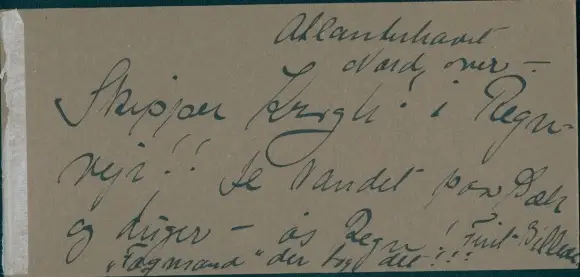 Atlanterhavet
Nord over -
Skipper Krogh i Regn-
vejr!! Se Vandet paa Dæk
og Luger - og Regn! Fint Billede
"Fagmand" der tog det!!!